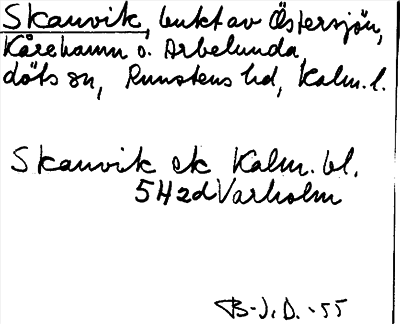 Skauvik, bukt av Östersjön,
Kårehamn o. Arbelunda,
döts sn, Runstens hd, Kalm. l.
Skauvik ek Kalm. bl.
5H2d Varholm
B-J.D. -55